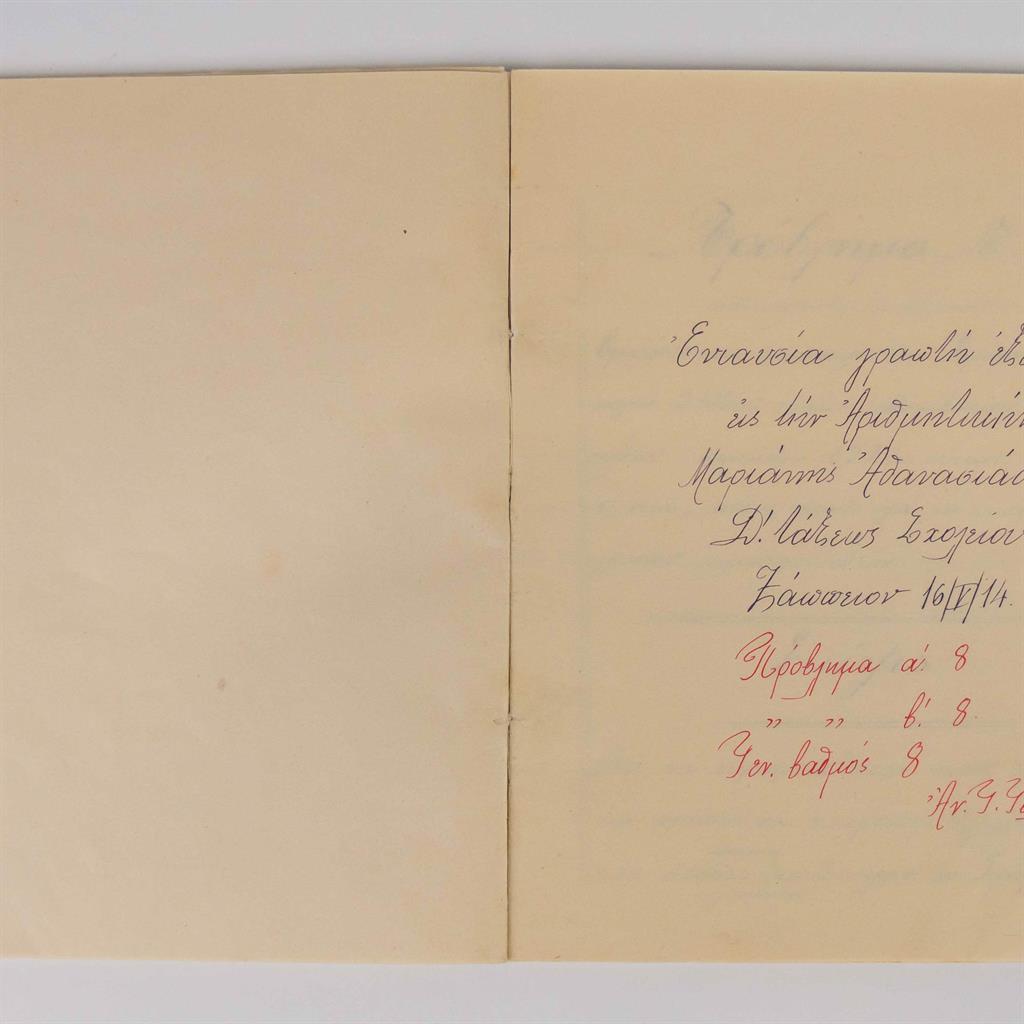 Ἐνιαυσία γραπτὴ ἐξε
εἰς τὴν Ἀριθμητικὴν
Μαριάνθης Ἀθανασιάδ
Δ'. τάξεως Σχολείου
Ζάππειον 16/V/14.
Πρόβλημα α'. 8
,, ,, β'. 8.
Γεν. βαθμός 8
Ἀν. Γ.